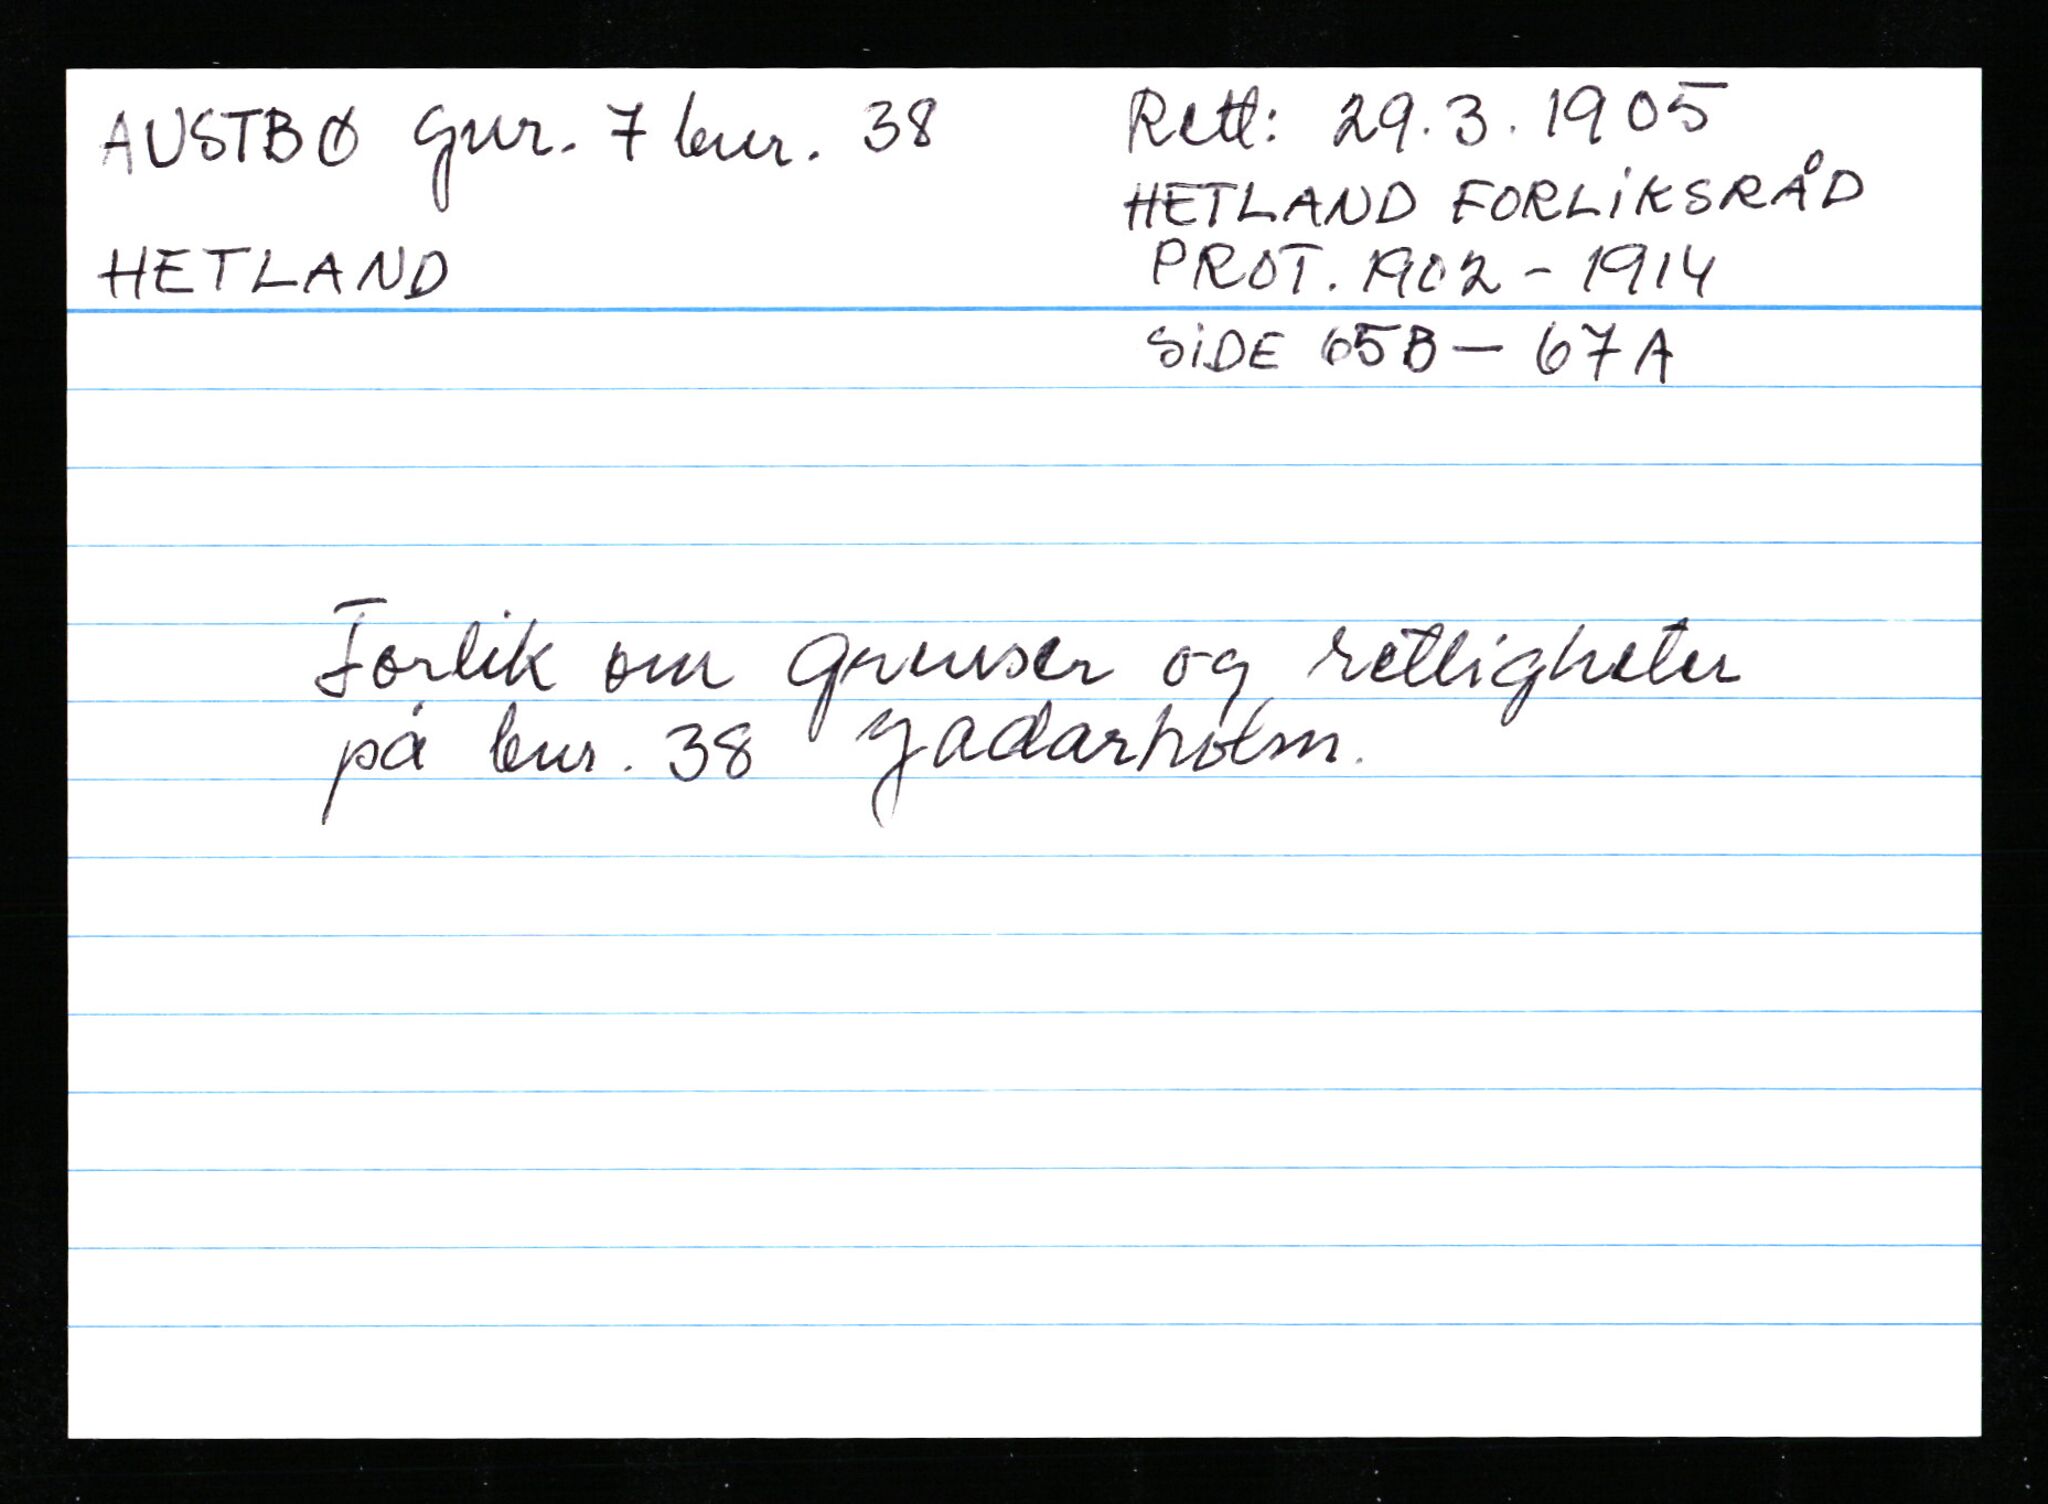 AUSTBØ gnr. 7 bnr. 38
HETLAND
Rett: 29.3.1905
HETLAND FORLIKSRÅD
PROT. 1902 - 1914
SIDE 65B - 67A
Forlik om grenser og rettigheter
på bnr. 38 Jadarholm.